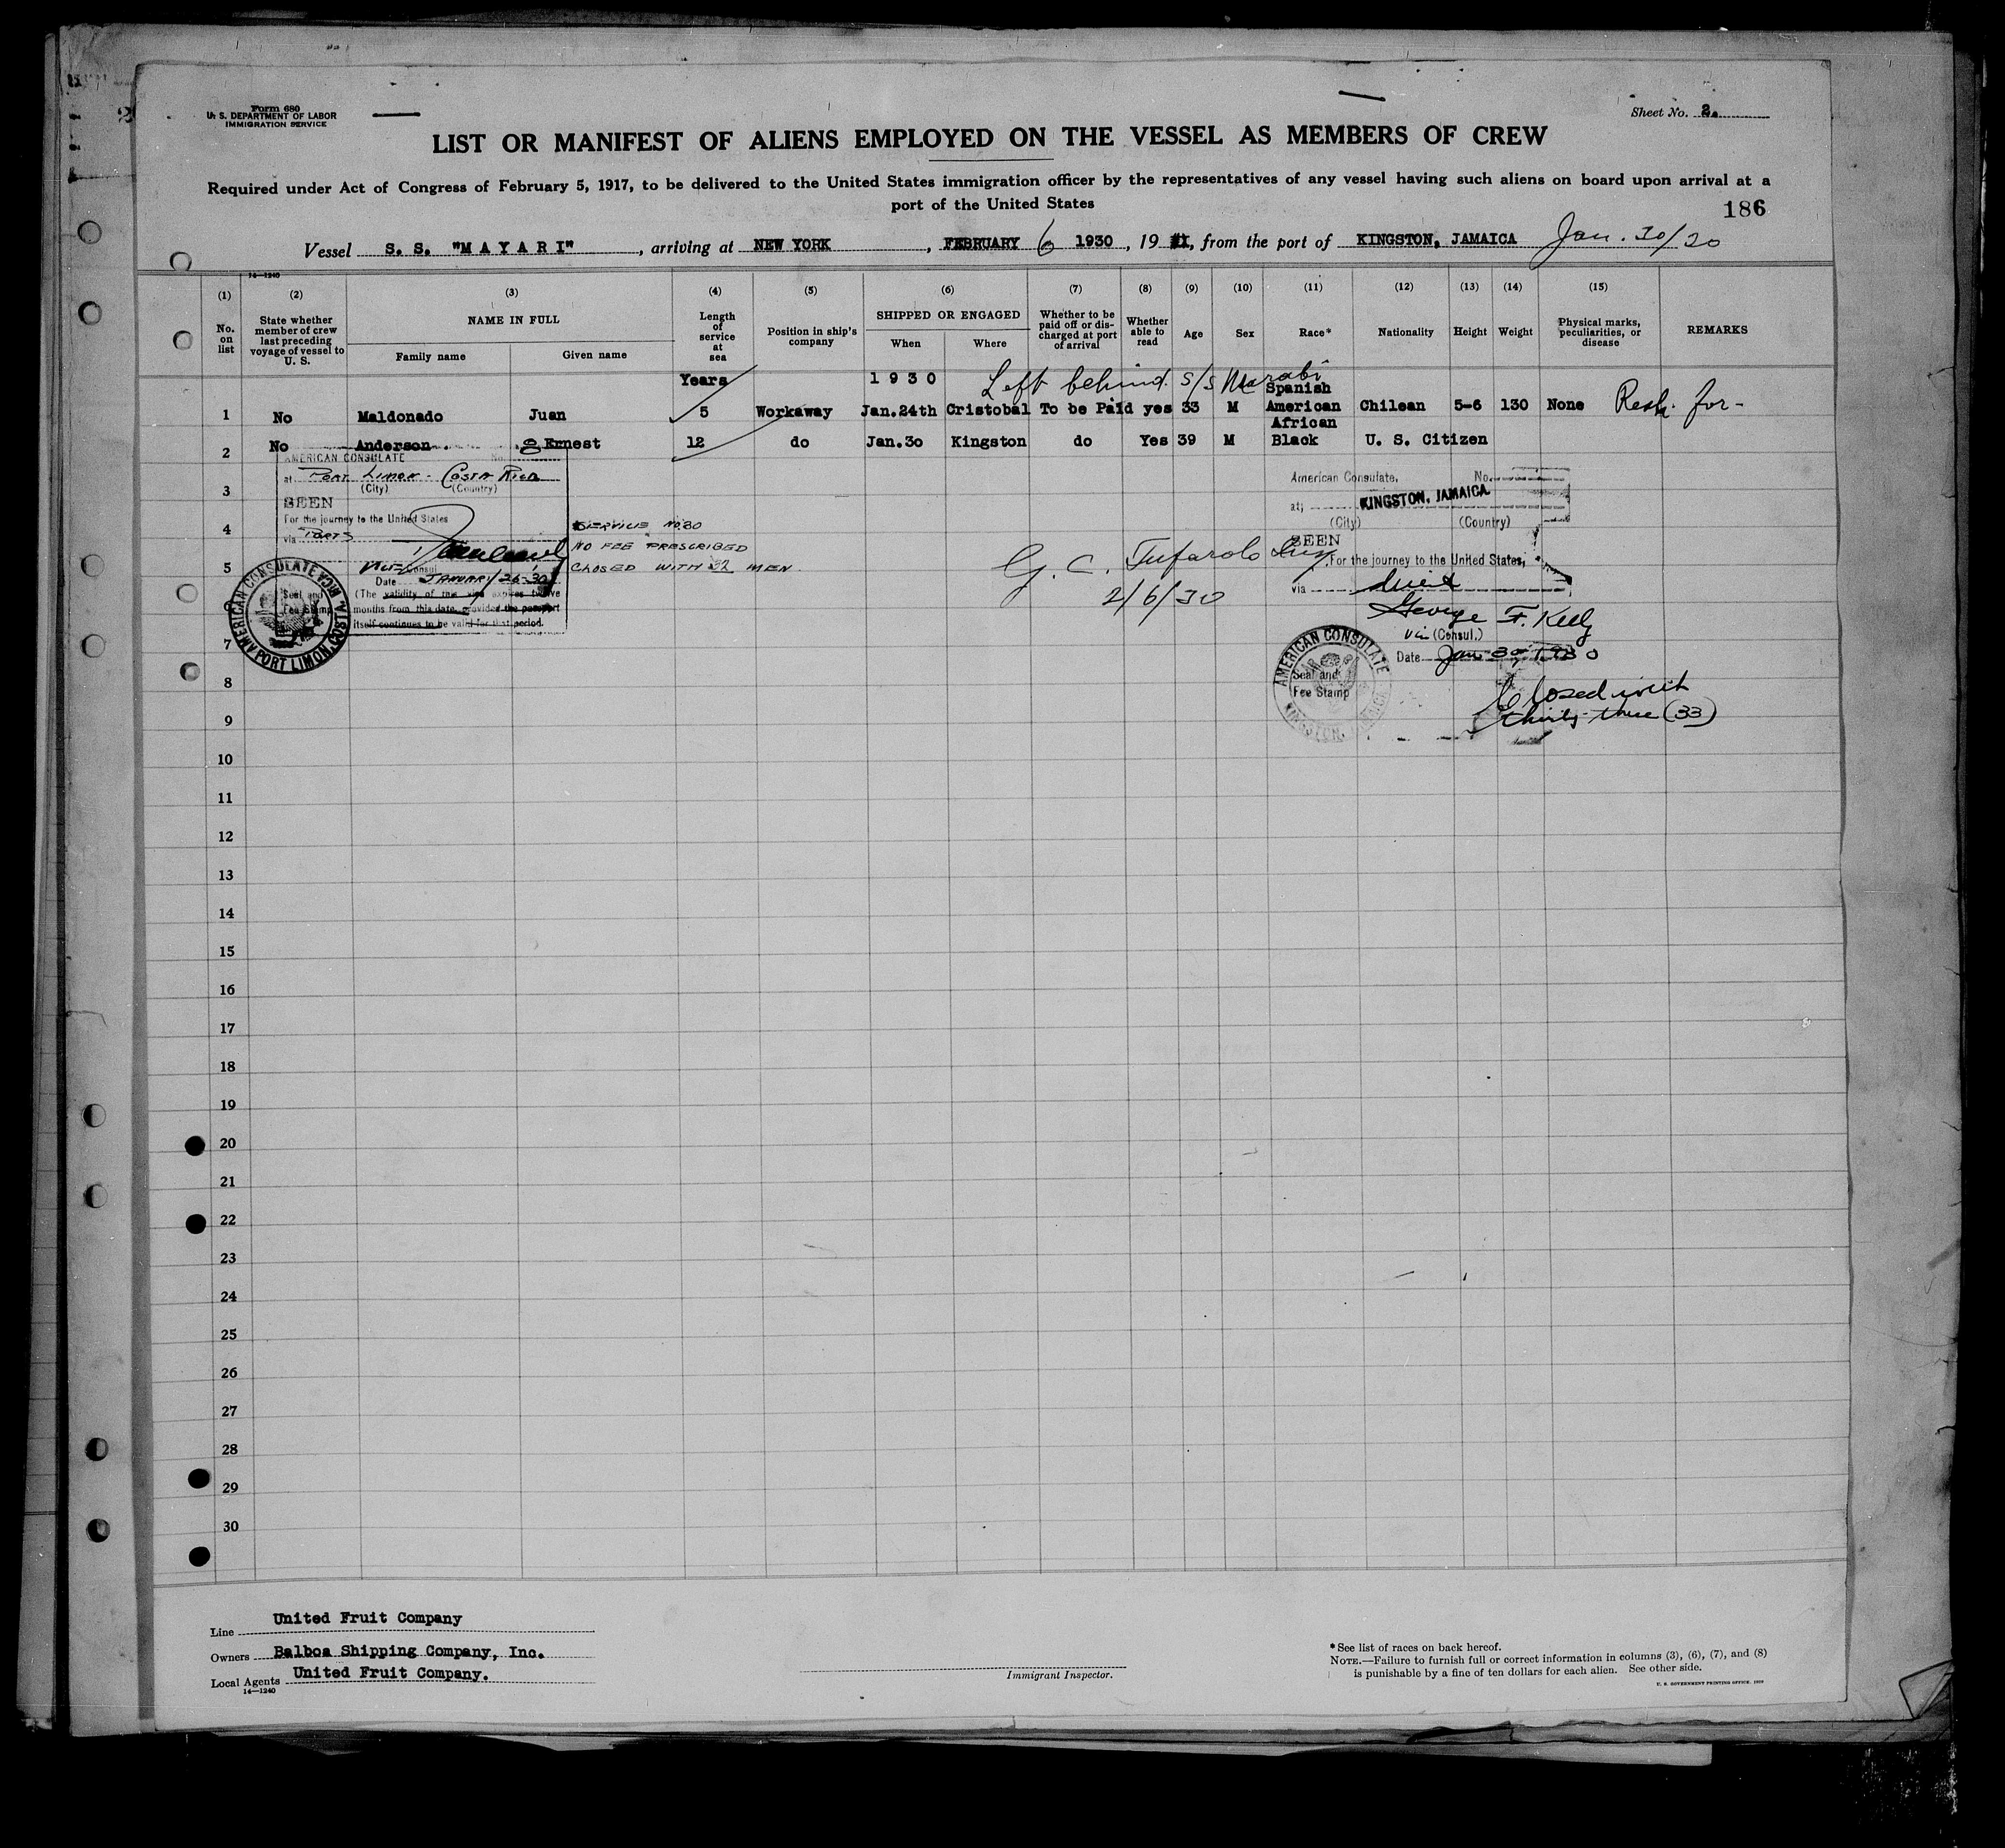 Form 680
U. S. DEPARTMENT OF LABOR
IMMIGRATION SERVICE
Sheet No. 2.
LIST OR MANIFEST OF ALIENS EMPLOYED ON THE VESSEL AS MEMBERS OF CREW
Required under Act of Congress of February 5, 1917, to be delivered to the United States immigration officer by the representatives of any vessel having such aliens on board upon arrival at a
port of the United States
186
Vessel S. S. "MAYARI", arriving at NEW YORK, FEBRUARY 6 1930, 19, from the port of KINGSTON, JAMAICA Jan. 30/30
14—1240
(1) (2) (3) (4) (5) (6) (7) (8) (9) (10) (11) (12) (13) (14) (15)
No. on list
State whether member of crew last preceding voyage of vessel to U. S.
NAME IN FULL
Family name
Given name
Length of service at sea
Position in ship's company
SHIPPED OR ENGAGED
When
Where
Whether to be paid off or discharged at port of arrival
Whether able to read
Age
Sex
Race*
Nationality
Height
Weight
Physical marks, peculiarities, or disease
REMARKS
Years 1930 Left behind S/S
Spanish
1 No Maldonado Juan 5 Workaway Jan.24th Cristobal To be Paid yes 33 M American Chilean 5-6 130 None for-
African
2 No Anderson Ernest 12 do Jan.30 Kingston do Yes 39 M Black U. S. Citizen
AMERICAN CONSULATE No.
at PORT LIMON - COSTA RICA
(City) (Country)
SEEN
For the journey to the United States
via PORTS
Vice Consul
Date JANUARY 26-30
(The validity of this visa expires twelve
months from this date, provided the passport
itself continues to be valid for that period.
Seal and
Fee Stamp
AMERICAN CONSULATE
PORT LIMON, COSTA RICA
SERVICE No.80
NO FEE PRESCRIBED
CLOSED WITH 32 MEN
G. C. Tufarolo
2/6/30
American Consulate, No.
at; KINGSTON, JAMAICA
(City) (Country)
SEEN
For the journey to the United States,
via direct
George F. Kelly
Vice (Consul.)
Date Jan 30, 1930
AMERICAN CONSULATE
Seal and
Fee Stamp
KINGSTON, JAMAICA
Closed with
thirty-three (33)
3
4
5
7
8
9
10
11
12
13
14
15
16
17
18
19
20
21
22
23
24
25
26
27
28
29
30
Line United Fruit Company
Owners Balboa Shipping Company, Inc.
Local Agents United Fruit Company.
14—1240
Immigrant Inspector.
*See list of races on back hereof.
NOTE.—Failure to furnish full or correct information in columns (3), (6), (7), and (8)
is punishable by a fine of ten dollars for each alien. See other side.